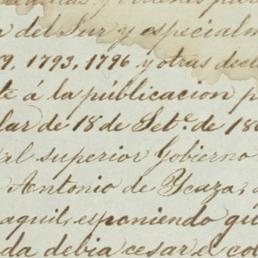 del Sur y especialm
9, 1793, 1796 y otras dicta
te á la publicacion p
lar de 18 de Set.e de 18
al superior Gobierno
Antonio de Ycaza,
aquil, esponiendo qu
da debia cesar el co